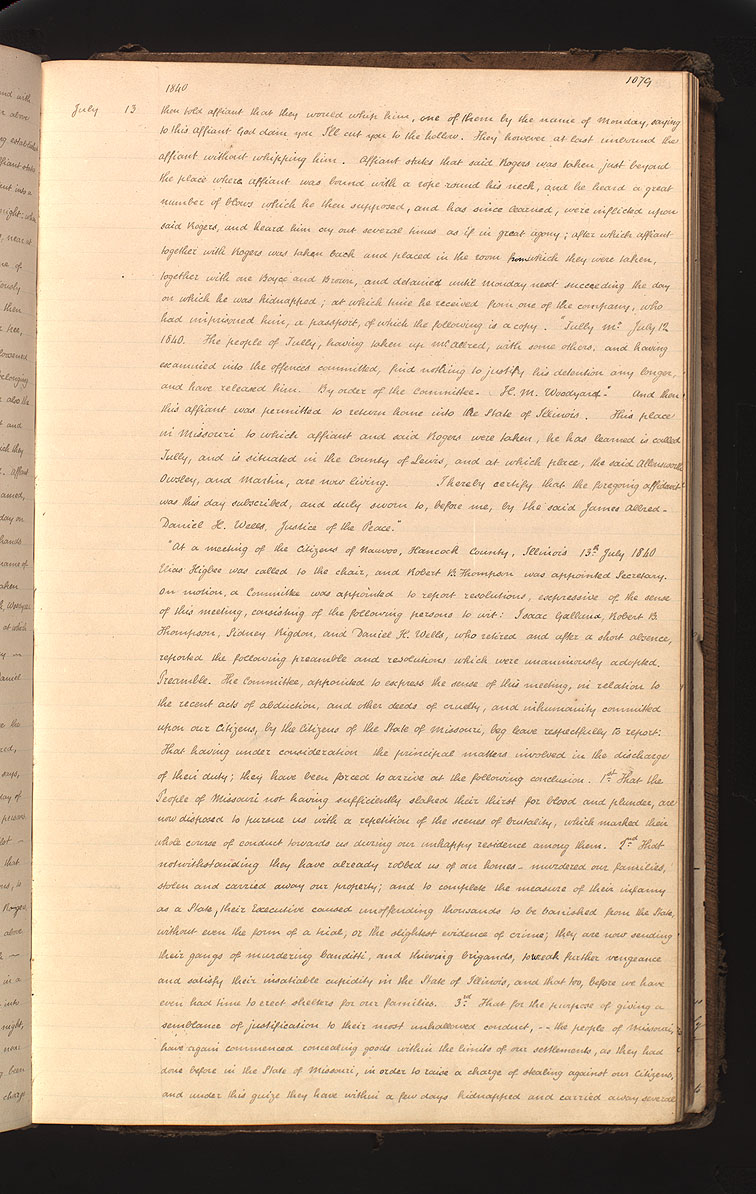 1079
1840
July 13 then told affiant that they would whip him, one of them by the name of Monday, saying
to this affiant God damn you I'll cut you to the hollow. They however at last unbound the
affiant without whipping him. Affiant states that said Rogers was taken just beyond
the place where affiant was bound with a rope round his neck, and he heard a great
number of blows which he then supposed, and has since learned, were inflicted upon
said Rogers, and heard him cry out several times as if in great agony; after which affiant
together with Rogers was taken back and placed in the room from which they were taken,
together with one Boyce and Brown, and detained until Monday next succeeding the day
on which he was kidnapped; at which time he received from one of the company, who
had imprisoned him, a passport, of which the following is a copy. "Tully Mo. July 12
1840. The people of Tully, having taken up Mc Allred, with some others, and having
examined into the offences committed, find nothing to justify his detention any longer,
and have released him. By order of the Committee - H. M. Woodyard." And then
this affiant was permitted to return home into the State of Illinois. This place
in Missouri to which affiant and said Rogers were taken, he has learned is called
Tully, and is situated in the County of Lewis, and at which place, the said Allensworth
Owsley, and Martin, are now living. I hereby certify that the foregoing affidavit
was this day subscribed, and duly sworn to, before me, by the said James Allred -
Daniel H. Wells, Justice of the Peace."
"At a meeting of the Citizens of Nauvoo, Hancock County, Illinois 13th July 1840
Elias Higbee was called to the chair, and Robert B. Thompson was appointed Secretary.
On motion, a Committee was appointed to report resolutions, expressive of the sense
of this meeting, consisting of the following persons to wit: Isaac Galland, Robert B.
Thompson, Sidney Rigdon, and Daniel H. Wells, who retired and after a short absence,
reported the following preamble and resolutions which were unanimously adopted.
Preamble. The Committee, appointed to express the sense of this meeting, in relation to
the recent acts of abduction, and other deeds of cruelty, and inhumanity committed
upon our Citizens, by the Citizens of the State of Missouri, beg leave respectfully to report:
That having under consideration the principal matters involved in the discharge
of their duty; they have been forced to arrive at the following conclusion. 1st That the
People of Missouri not having sufficiently slaked their thirst for blood and plunder, are
now disposed to pursue us with a repetition of the scenes of brutality, which marked their
whole course of conduct towards us during our unhappy residence among them. 2nd That
notwithstanding they have already robbed us of our homes - murdered our families,
stolen and carried away our property; and to complete the measure of their infamy
as a State, their Executive caused unoffending thousands to be banished from the State,
without even the form of a trial, or the slightest evidence of crime; they are now sending
their gangs of murdering banditti, and thieving brigands, to wreak further vengeance
and satisfy their insatiable cupidity in the State of Illinois, and that too, before we have
even had time to erect shelters for our families. 3rd That for the purpose of giving a
semblance of justification to their most unhallowed conduct, - - the people of Missouri,
have again commenced concealing goods within the limits of our settlements, as they had
done before in the State of Missouri, in order to raise a charge of stealing against our Citizens,
and under this guize they have within a few days kidnapped and carried away several